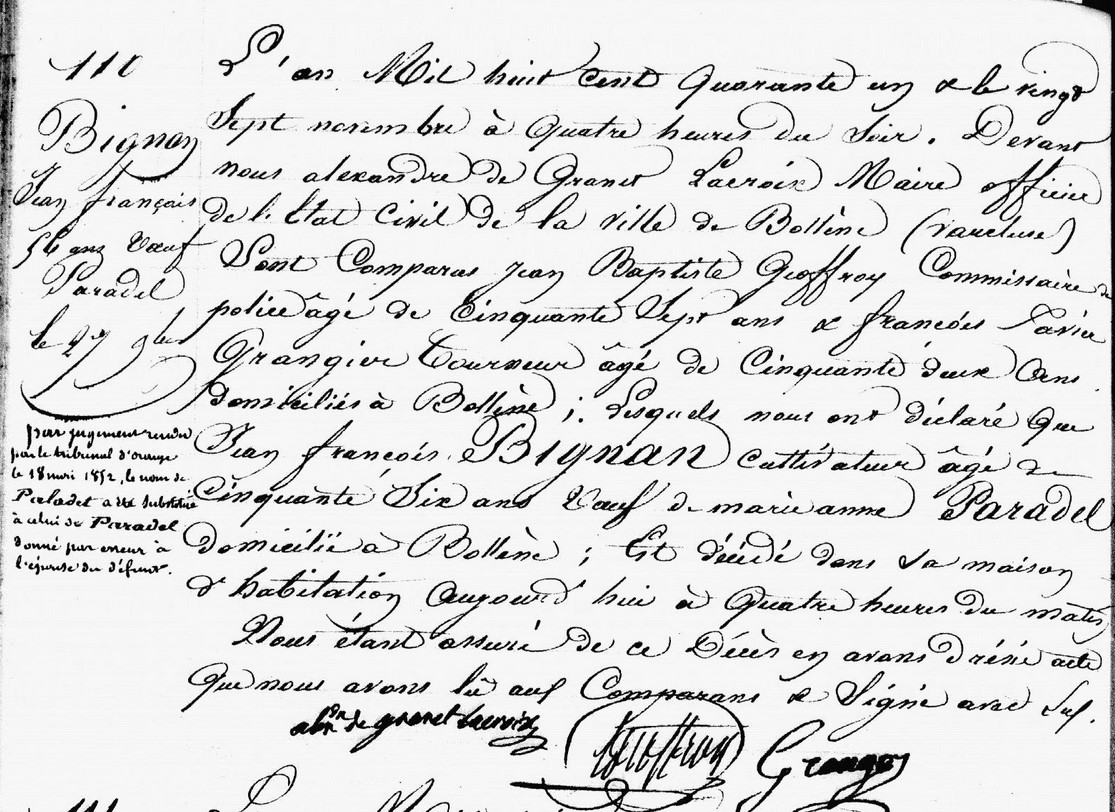 110
Bignan
Jean françois
56 ans Vœuf
Paradel
le 27 9bre
par jugement rendu
par le tribunal d'orange
le 18 mri 1852, le nom de
Paladel a été substitué
à celui de Paradel
donné par erreur à
l'épouse du défunt.
L'an Mil huit cent quarante un & le vingt
Sept novembre à quatre heures du Soir. Devant
nous alexandre de Granet Lacroix Maire officier
de l'Etat Civil de la ville de Bollène (vaucluse)
Sont Comparus Jean Baptiste Geoffroy Commissaire de
police âgé de Cinquante Sept ans & françois Xavier
Grangier tourneur âgé de Cinquante deux ans
domiciliés à Bollène ; Lesquels nous ont déclaré que
Jean françois Bignan cultivateur âgé de
Cinquante Six ans Vœuf de marie anne Paradel
domicilié à Bollène ; Est décédé dans sa maison
d'habitation aujourd'hui à quatre heures du matin
Nous étant assuré de ce Décès en avons dréssé acte
que nous avons lû aux Comparans & Signé avec Eux.
alxdre de granet Lacroix
Geoffroy
Grangier
111
L'an